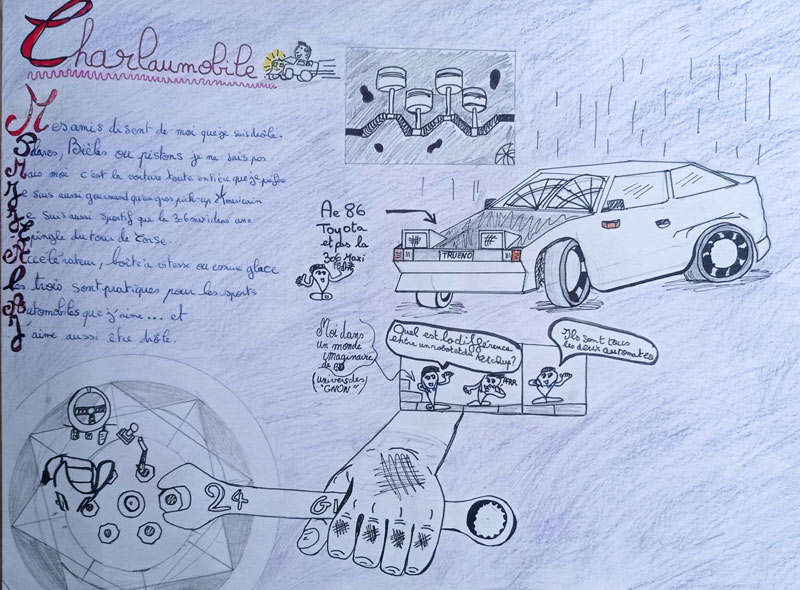 Charlaumobile
Mes amis disent de moi que je suis drôle.
Bielles ou pistons je ne sais pas
Mais moi c'est la voiture toute entière que je
Je suis aussi gourmand qu'un gros pick-up Américain
Je suis aussi sportif que la 306 maxi dans une
Épingle du tour de Corse
Accélérateur, boîte à vitesse ou course glace
Les trois sont pratiques pour les sports
Automobiles que j'aime... et
J'aime aussi être drôle.
Ae 86
Toyota
et pas la
306 Maxi
TRUENO
Moi dans
un monde
imaginaire
de BD
(univers des)
"GNON"
Quel est la différence
entre un robot et du
Ketchup?
Ils sont tous
les deux automates
24